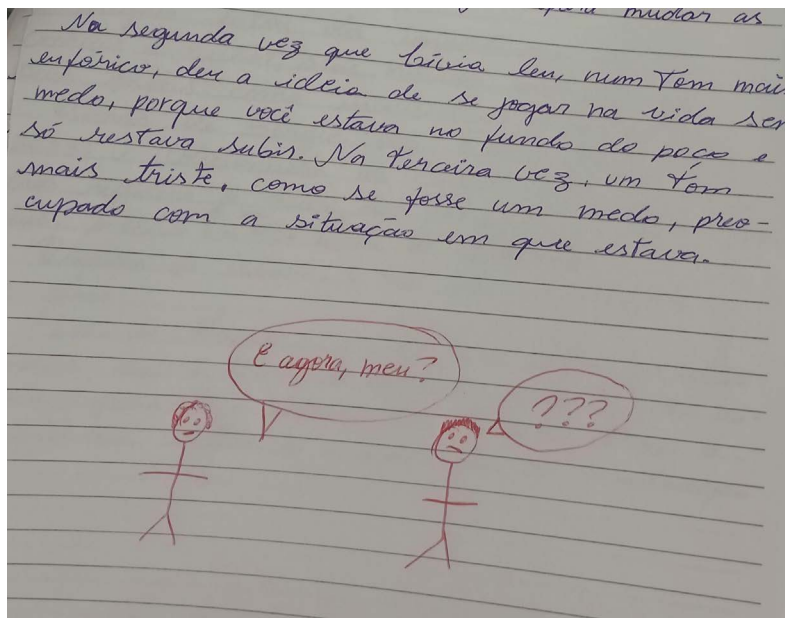 mudar as
Na segunda vez que Lívia leu, num tom mais
eufórico, deu a ideia de se jogar na vida sem
medo, porque você estava no fundo do poço e
só restava subir. Na terceira vez, um tom
mais triste, como se fosse um medo, preo-
cupado com a situação em que estava.
E agora, meu?
???